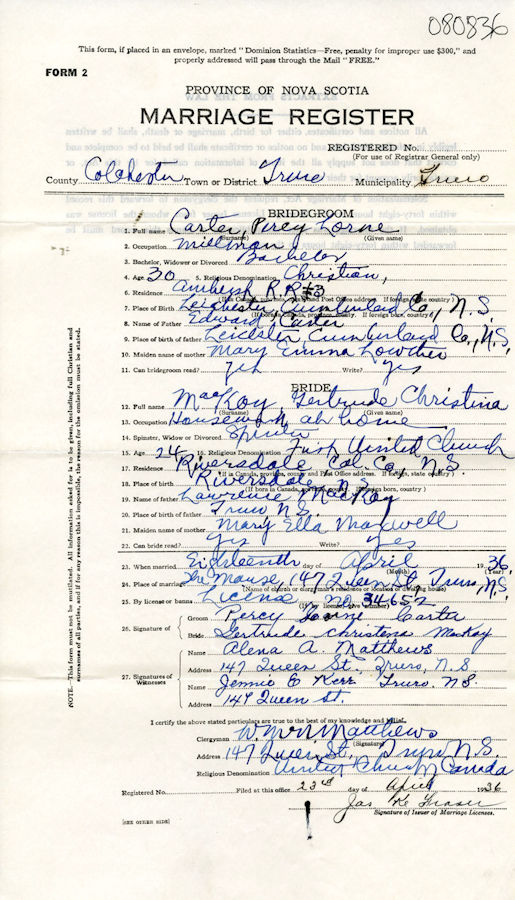 080836
This form, if placed in an envelope, marked "Dominion Statistics—Free, penalty for improper use $300," and
properly addressed will pass through the Mail "FREE."
FORM 2
PROVINCE OF NOVA SCOTIA
MARRIAGE REGISTER
REGISTERED No.
(For use of Registrar General only)
County Colchester Town or District Truro Municipality Truro
BRIDEGROOM
1. Full name Carter, Percy Lorne
(Surname) (Given name)
2. Occupation Millman
3. Bachelor, Widower or Divorced Bachelor
4. Age 30 5. Religious Denomination Christian,
6. Residence Amherst R.R #3
7. Place of Birth Leicester Cumberland Co., N.S.
8. Name of Father Edward Carter
9. Place of birth of father Leicester Cumberland Co., N.S.
10. Maiden name of mother Mary Emma Lowther
11. Can bridegroom read? Yes Write? Yes
BRIDE
12. Full name MacKay, Gertrude Christina
(Surname) (Given name)
13. Occupation Housework at home
14. Spinster, Widow or Divorced Spinster
15. Age 24 16. Religious Denomination First United Church
17. Residence Riversdale Col. Co., N.S.
18. Place of birth Riversdale N.S.
19. Name of father Lawrence MacKay
20. Place of birth of father Truro N.S.
21. Maiden name of mother Mary Ella Maxwell
22. Can bride read? Yes Write? yes
23. When married Eighteenth day of April 1936
(Month)
24. Place of marriage The Manse, 147 Queen St. Truro, N.S.
(Name of church or clergyman's residence or location of dwelling house)
25. By license or banns License no. 34652
(If by license give number)
26. Signature of
Groom Percy Lorne Carter
Bride Gertrude Christena MacKay
27. Signatures of Witnesses
Name Alena A. Matthews
Address 147 Queen St., Truro, N.S
Name Jennie E Kerr Truro. N.S.
Address 147 Queen St.
I certify the above stated particulars are true to the best of my knowledge and belief.
Clergyman Matthews
(Signature)
Address 147 Queen St., Truro N.S.
Religious Denomination United Church Canada
Registered No. Filed at this office 23rd day of April 1936
Jas Fraser
Signature of Issuer of Marriage Licenses.
[SEE OTHER SIDE]
NOTE.—This form must not be mutilated. All information asked for is to be given, including full Christian and
surnames of all parties, and if for any reason this is impossible, the reason for the omission must be stated.